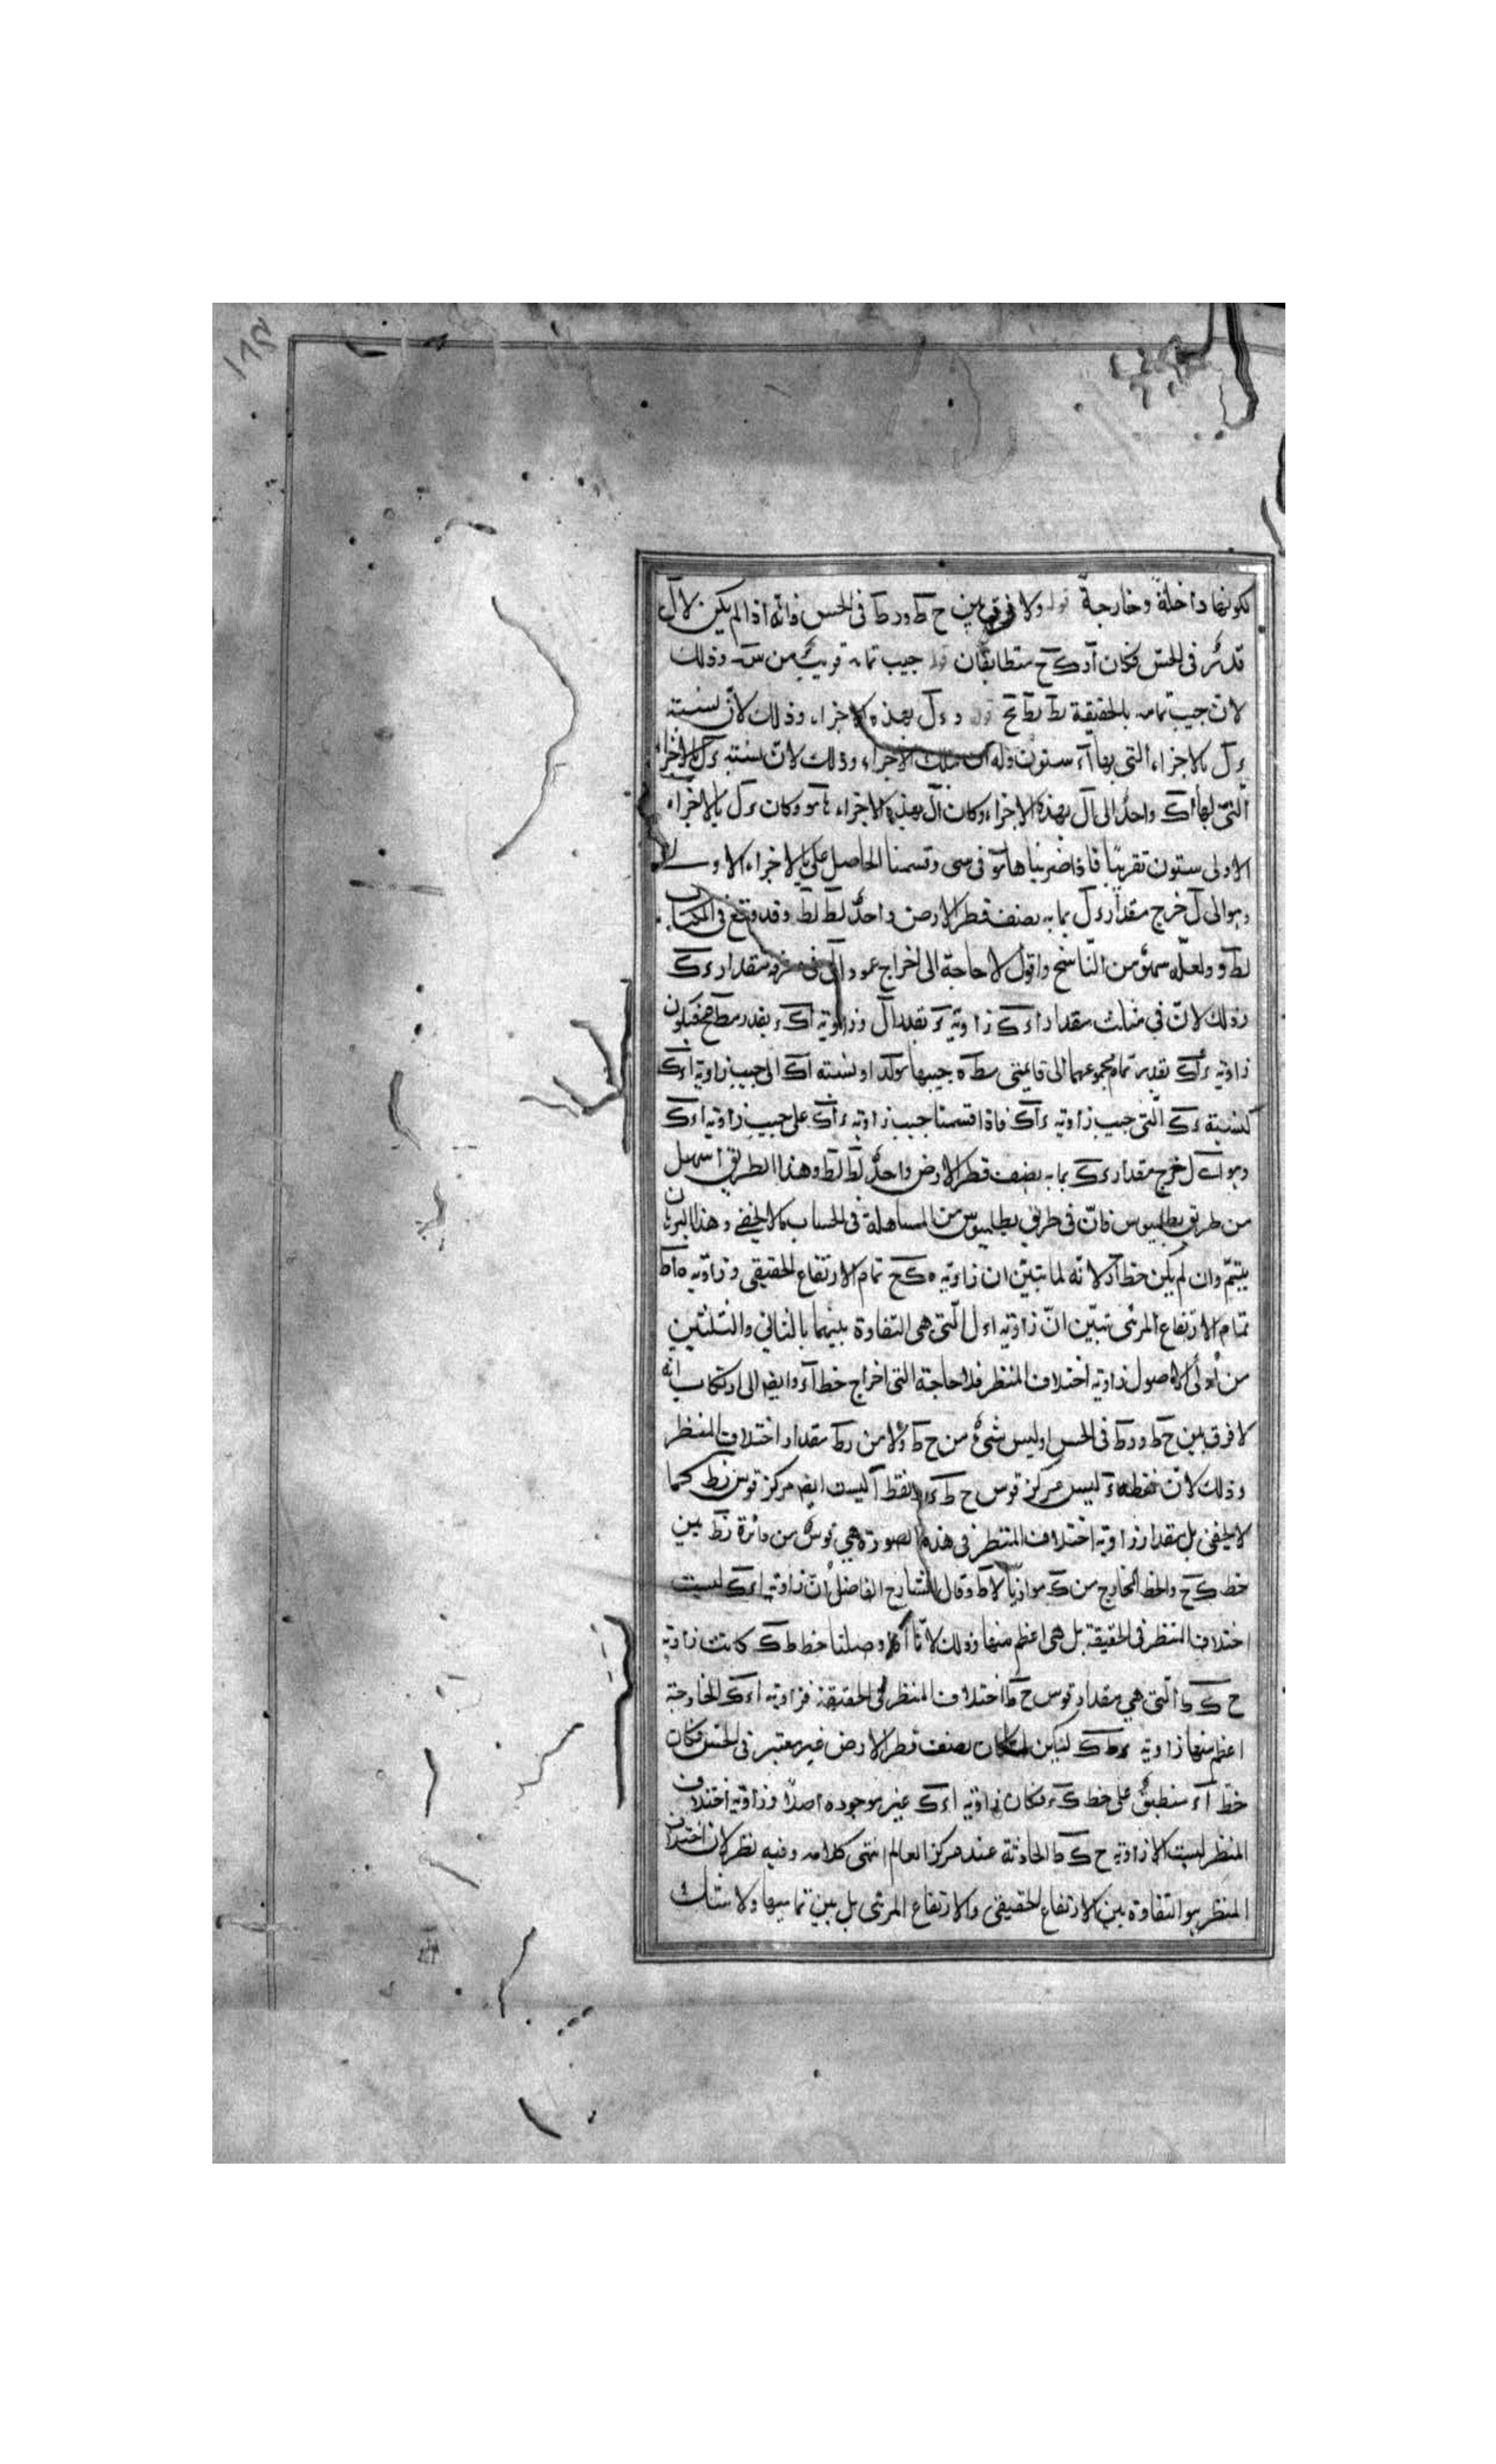 لكونها داخلة وخارجة قوله ولا فرق بين ح ط ور ط فى الحس فانه اذا لم يكن لال
قدر فى الحس فكان أد كح متطابقان قوله جيب تمامه قريب من س وذلك
لان جيب تمامه بالحقيقة نط نط نح قوله و ء ل بهذه الاجزاء وذلك لان نسبته
ء ل بالاجزاء التى بها أء ستون وله تلك الاجزاء وذلك لان نسبته ء ل بالاجزاء
التى بها أك واحد الى أل بهذه الاجزاء وكان أل بهذه الاجزاء وكان ء ل بالاجزاء
الاولى ستون تقريبا فاذا ضربناها فى وقسمنا الحاصل على بالاجزاء الاولى
وهو الى ل خرج مقدار ء ل بما به نصف قطر الارض واحد لط لط وقد وقع فى الكتاب
لط و ولعله سهو من الناسخ واقول لا حاجة الى اخراج عمود أل فى معرفة مقدار ء ك
وذلك لان في مثلث مقدار أ ء ك زاوية ء بقدر أل وزاوية أك ء بقدر فيكون
زاوية ء أك بقدر تمام مجموعهما الى قائمتى جيبها ونسبته أك الى جيب زاوية أ ء ك
كنسبة ء ك التى جيب زاوية ء أك فاذا قسمنا جيب زاوية ء أك على جيب زاوية أ ء ك
وهو ا ل خرج مقدار ء ك بما به نصف قطر الارض واحد لط لط وهذا الطريق اسهل
من طريق بطليموس فان فى طريق بطليموس من المساهلة فى الحساب كما لا يخفى وهذا البرهان
يتم وان لم يكن خط أد لانه لما تبين ان زاوية ه كح تمام الارتفاع الحقيقى وزاوية ه أط
تمام الارتفاع المرئى تبين ان زاوية اء ل التى هى التفاوة بينهما بالثانى والثلثين
من أولى الاصول زاوية اختلاف المنظر فلا حاجة التى اخراج خط أء وايضا الى ارتكاب انه
لا فرق بين ح ط ور ط فى الحس اوليس شئ من ح ط ولا من ر ط مقدار اختلاف المنظر
وذلك لان نقطة ء ليس مركز قوس ح ط ونقطة أ ليست ايضا مركز قوس زط كما
لا يخفى بل مقدار زاوية اختلاف المنظر فى هذه الصورة هى قوس من دائرة زط بين
خط كح والخط الخارج من ك موازيا لاط وقال الشارح الفاضل ان زاوية اء ك ليست
اختلاف المنظر فى الحقيقة بل هى اعظم منها وذلك لانا اذا وصلنا خط ط ك كانت زاوية
ح ك ط التى هى مقدار قوس ح ط اختلاف المنظر فى الحقيقة فزاوية اء ك الخارجة
اعظم منها زاوية ء ط ك لكن لما كان نصف قطر الارض غير معتبر فى الحس فكان
خط أء منطبق على خط ك ء فكان زاوية اء ك غير موجودة اصلا وزاوية اختلاف
المنظر ليست الا زاوية ح ك ط الحادثة عند مركز العالم انتهى كلامه وفيه نظر لان اختلاف
المنظر هو التفاوة بين الارتفاع الحقيقى والارتفاع المرئى بل بين تماميها ولا شك